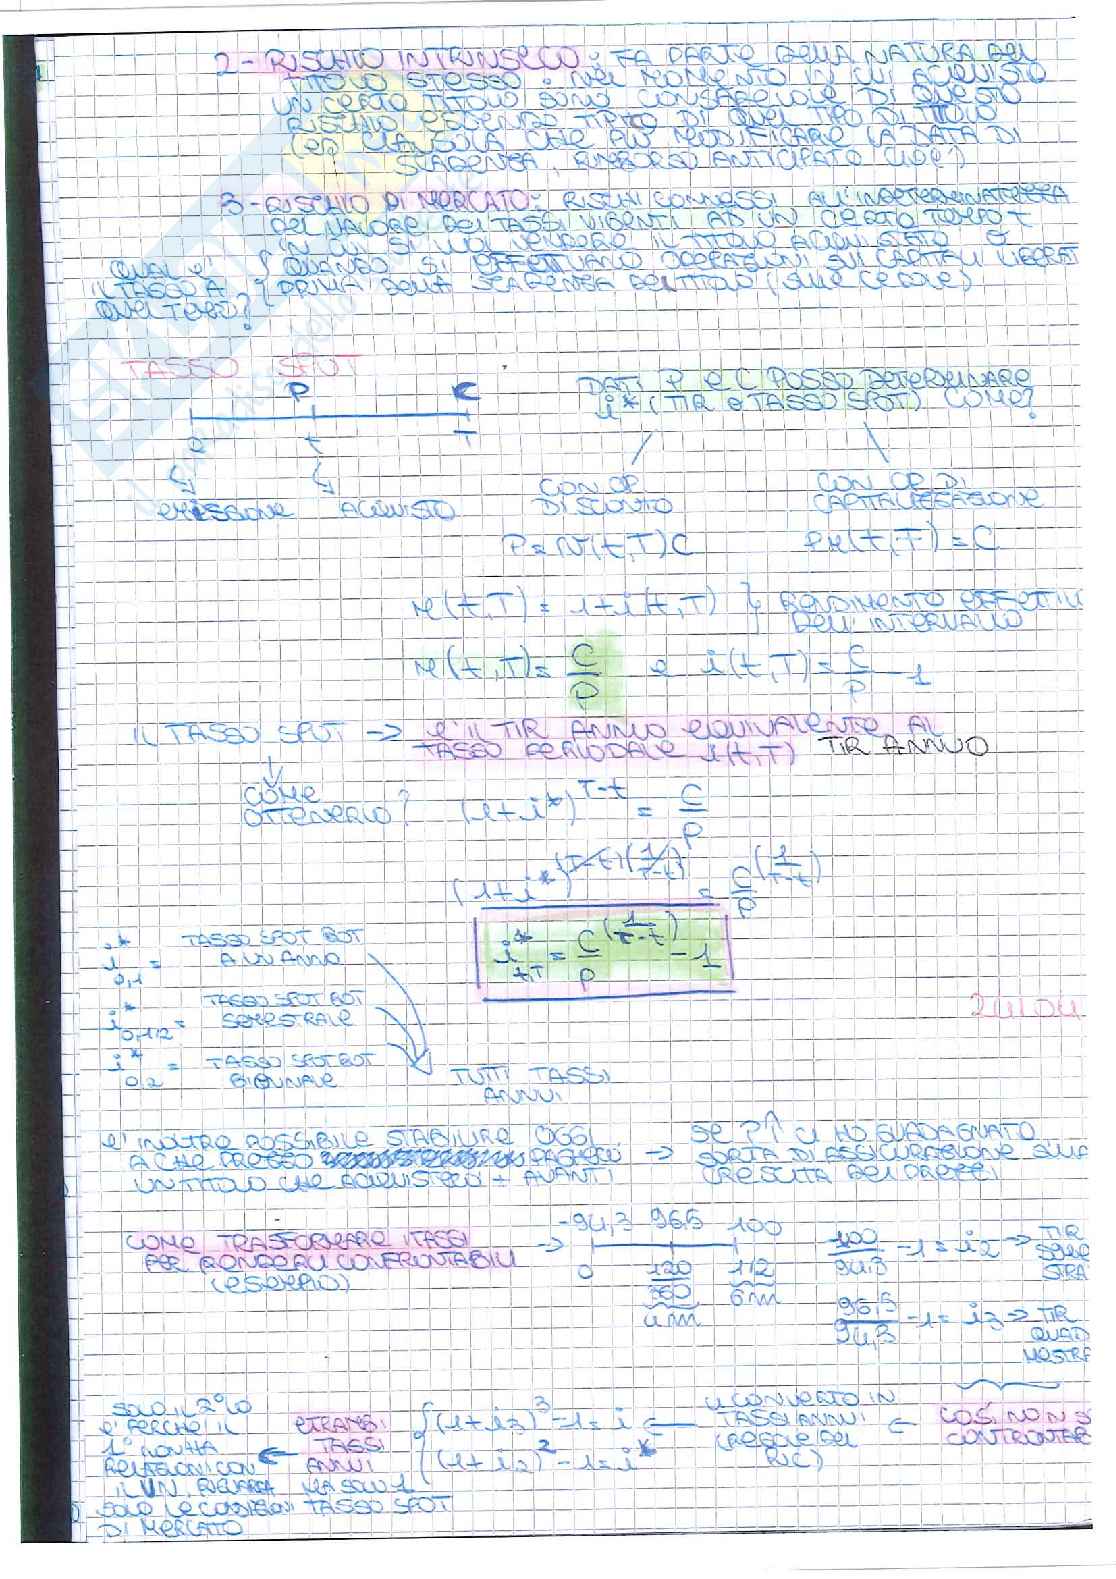 2- RISCHIO INTRINSECO: FA PARTE DELLA NATURA DEL
TITOLO STESSO: NEL MOMENTO IN CUI ACQUISTO
UN CERTO TITOLO SONO CONSAPEVOLE DI QUESTO
RISCHIO ESSENDO TIPICO DI QUEL TIPO DI TITOLO
(es CLAUSOLA CHE PUÒ MODIFICARE LA DATA DI
SCADENZA, RIMBORSO ANTICIPATO
3- RISCHIO DI MERCATO: RISCHI CONNESSI ALL'INDETERMINATEZZA
DEL VALORE DEI TASSI VIGENTI AD UN CERTO TEMPO T
IN CUI SI VUOL VENDERE IL TITOLO ACQUISTATO O
QUANDO SI EFFETTUANO OPERAZIONI SUI CAPITALI LIBERATI
PRIMA DELLA SCADENZA DEL TITOLO (SULLE CEDOLE)
QUAL È
IL TASSO A
QUEL TEMPO?
TASSO SPOT
P C
0 t T
EMISSIONE ACQUISTO
DATI P E C POSSO DETERMINARE
i* (TIR E TASSO SPOT) COME?
CON OP DI SCONTO
P = v(t,T)C
CON OP DI
CAPITALIZZAZIONE
P r(t,T) = C
r(t,T) = 1+i(t,T) } RENDIMENTO EFFETTIV
DELL'INTERVALLO
r(t,T) = C/P e i(t,T) = C/P - 1
IL TASSO SPOT -> È IL TIR ANNUO EQUIVALENTE AL
TASSO PERIODALE i(t,T) TIR ANNUO
COME
OTTENERLO? (1+i*)^(T-t) = C/P
(1+i*)^((T-t)(1/(T-t))) = C/P^(1/(T-t))
i*t,T = C/P^(1/(T-t)) - 1
i*0,1 = TASSO SPOT BOT
A UN ANNO
i*0,1/2 = TASSO SPOT BOT
SEMESTRALE
i*0,2 = TASSO SPOT BOT
BIENNALE
TUTTI TASSI
ANNUI
24/04
E' INOLTRE POSSIBILE STABILIRE OGGI
A CHE PREZZO PAGHERÒ
UN TITOLO CHE ACQUISTERÒ + AVANTI
-> SE P↑ CI HO GUADAGNATO
SORTA DI ASSICURAZIONE SULLA
CRESCITA DEI PREZZI
COME TRASFORMARE I TASSI
PER RENDERLI CONFRONTABILI
(ESEMPIO)
-> -94,3 96,5 100
0 120/360 1/2
4m 6m
100/94,3 - 1 = i2 -> TIR
SEME
STRA
96,5/94,3 - 1 = i3 -> TIR
QUAD
MESTRA
COSÌ NON S
CONFRONTAR
<- LI CONVERTO IN
TASSI ANNUI
(REGOLE DEL
RIC)
<- { (1+i3)^3 - 1 = i
(1+i2)^2 - 1 = i*
ENTRAMBI
TASSI
ANNUI
MA SOLO 1
TASSO SPOT
<- SOLO IL 2° LO
È PERCHÉ IL
1° NON HA
RELAZIONI CON
IL VN, RIGUARDA
SOLO LE CONDIZIONI
DI MERCATO